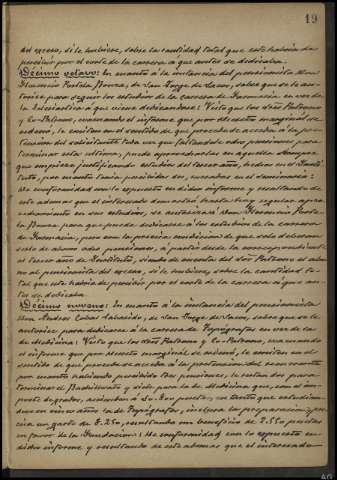 19
del exceso, si le hubiere, sobre la cantidad total que este habría de
percibir por el coste de la carrera a que antes se dedicaba.
Décimo octavo: En cuanto a la instancia del pensionista Don
Florencio Portela Bouza, de San Jorge de Sacos, sobre que se le au-
torice para seguir los estudios de la carrera de Farmacia en vez de
la Eclesiástica a que viene dedicándose: Visto que los Sres Patrono
y Co-Patrono, evacuando el informe que por decreto marginal se
ordenó, lo emiten en el sentido de que procede acceder a la pe-
tición del solicitante toda vez que faltándole otra pensión para
terminar esta última, puede aprovecharlas en aquella siempre
que empiece justificando estudios del tercer año, pedir en el Insti-
tuto, por cuanto tenía percibidas dos, cursadas en el seminario:
De conformidad con lo expuesto en dicho informe y resultando de
este además que el interesado demostró hasta hoy regular apro-
vechamiento en sus estudios, se autoriza a Don Florencio Porte-
la Bouza para que pueda dedicarse a los estudios de la carrera
de Farmacia, pero con la precisa condición de que solo deberán
serle de abono ocho pensiones, a partir desde la correspondiente
al tercer año de Instituto, siendo de cuenta del Sor Patrono el abo-
no al pensionista del exceso, si le hubiere, sobre la cantidad to-
tal que este habría de percibir por el coste de la carrera a que an-
tes se dedicaba.
Décimo noveno: En cuanto a la instancia del pensionista
Don Andrés Cabas Salcedo, de San Jorge de Sacos, sobre que se le
autorice para dedicarse a la carrera de Topógrafos en vez de la
de Medicina: Visto que los Sres Patrono y Co-Patrono, evacuando
el informe que por decreto marginal se ordenó, lo emiten en el
sentido de que procede acceder a la pretensión del recurrente
por cuanto teniendo percibidas tres pensiones, le restan dos para
terminar el Bachillerato y siete para la de Medicina que, con el im-
porte de grados, ascienden a pesetas; en tanto que estudian-
dose en cinco años la de Topógrafos, inclusa la preparación, pre-
cisa un gasto de 8.250, resultando un beneficio de 2.550 pesetas
en favor de la Fundación: De conformidad con lo expuesto en
dicho informe y resultando de este además que el interesado